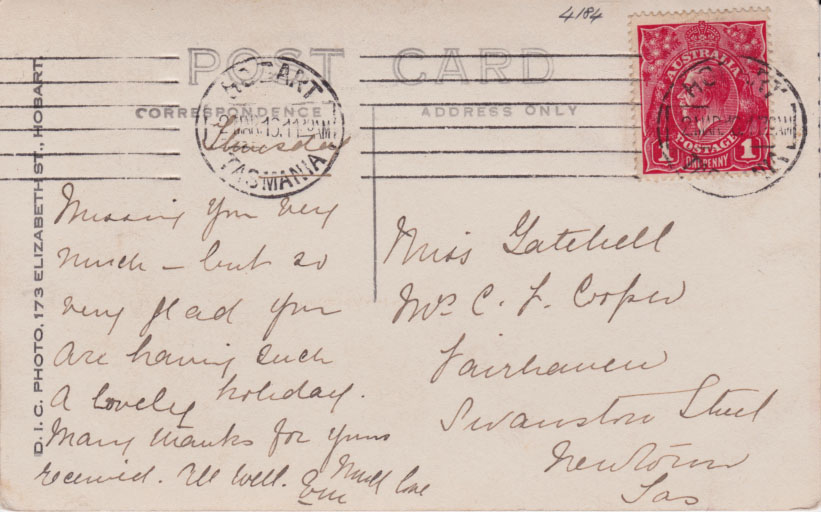 4184
POST CARD
CORRESPONDENCE
ADDRESS ONLY
HOBART
TASMANIA
AUSTRALIA
POSTAGE
1 ONE PENNY 1
D. I. C. PHOTO, 173 ELIZABETH ST., HOBART.
Thursday
Missing you very
much - but so
very glad you
are having such
a lovely holiday.
Many thanks for yours
received. All well. Much love
Miss Gatehell
Mrs C. F. Cooper
Fairhaven
Swanston Street
Newtown
Tas